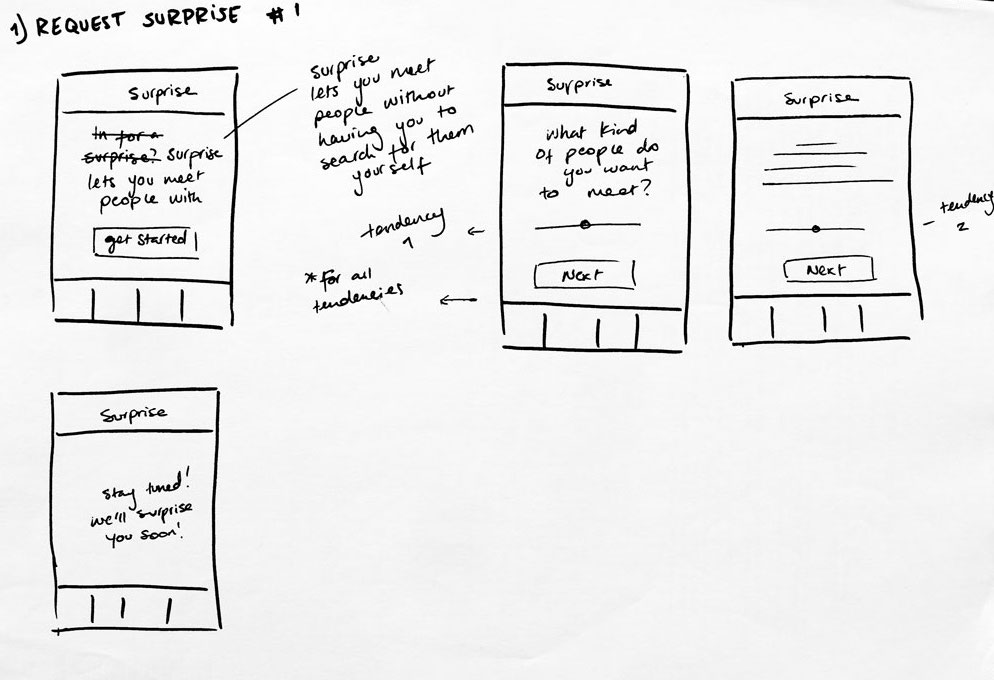 1) REQUEST SURPRISE #1
Surprise
In for a
surprise? Surprise
lets you meet
people with
get started
surprise
lets you meet
people without
having you to
search for them
yourself
tendency
1
*for all
tendencies
Surprise
What kind
of people do
you want
to meet?
Next
Surprise
Next
tendency
2
Surprise
stay tuned!
we'll surprise
you soon!